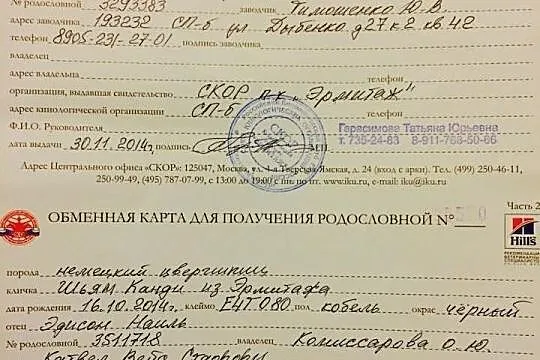 № родословной 5293383 заводчик Тимошенко Ю.В.
адрес заводчика 193232 СП-б ул Дыбенко д27 к2 кв.42
телефон 8905-231-27-01 подпись заводчика
владелец
адрес владельца телефон
организация, выдавшая свидетельство СКОР п.к. „Эрмитаж"
адрес кинологической организации СП-б
Ф.И.О. Руководителя телефон
Герасимова Татьяна Юрьевна
т. 735-24-63 8-911-768-50-66
дата выдачи 30.11.2014г подпись МП
Адрес Центрального офиса «СКОР»: 125047, Москва, ул. 4-я Тверская-Ямская, д. 24 (вход с арки). Тел. (499) 250-46-11,
250-99-49, (495) 787-07-99, с 13-00 до 19-00 с пн. по пт. www.iku.ru, e-mail: iku@iku.ru
Часть 2
ОБМЕННАЯ КАРТА ДЛЯ ПОЛУЧЕНИЯ РОДОСЛОВНОЙ №
Hill's
порода немецкий цвергшпиц
кличка Шьям Канди из Эрмитажа
дата рождения 16.10.2014г клеймо F4T080 пол кобель окрас чёрный
отец Эдисон Наиль
№ родословной 3511718 владелец Комиссарова О.Ю.